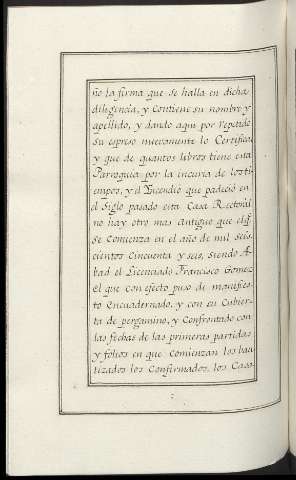 ño la firma que se halla en dicha
diligencia, y Contiene su nombre y
apellido, y dando aqui por repetido
su espreso nuevamente lo Certifica
y que de quantos libros tiene esta
Parroquia por la incuria de los ti
empos, y el Yncendio que padeció en
el Siglo pasado esta Casa Rectoral
no hay otro mas antiguo que el q.e
se Comienza en el año de mil seis-
cientos Cincuenta y seis, siendo A-
bad el Licenciado Francisco Gomez
el que con efecto puso de manifies-
to Encuadernado, y con su Cubier-
ta de pergamino, y Confrontado con
las fechas de las primeras partidas
y folios en que Comienzan los bau
tizados los Confirmados, los Casa-